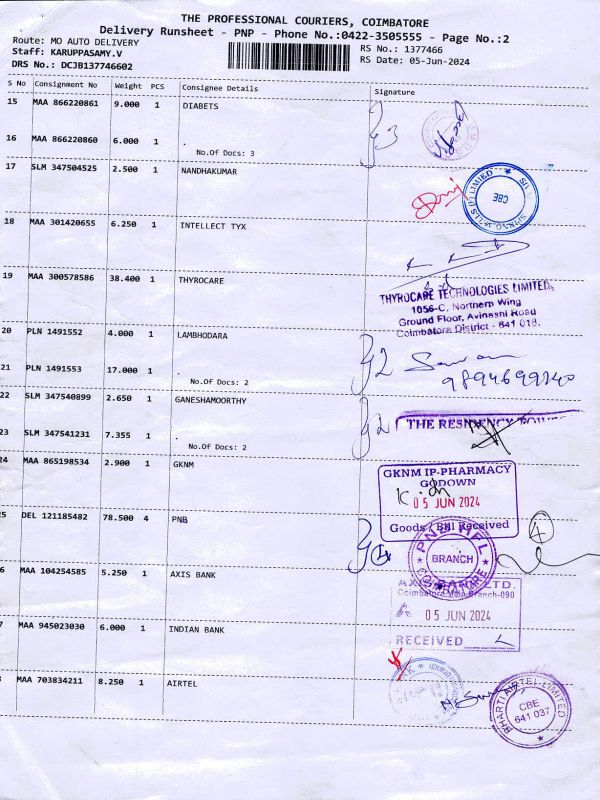 THE PROFESSIONAL COURIERS, COIMBATORE
Delivery Runsheet - PNP - Phone No.:0422-3505555 - Page No.:2
Route: MO AUTO DELIVERY
RS No.: 1377466
Staff: KARUPPASAMY.V
RS Date: 05-Jun-2024
DRS No.: DCJB137746602
S No Consignment No Weight PCS Consignee Details Signature
15 MAA 866220861 9.000 1 DIABETS
3
16 MAA 866220860 6.000 1 .
No.Of Docs: 3
17 SLM 347504525 2.500 1 NANDHAKUMAR
CBE
18 MAA 301420655 6.250 1 INTELLECT TYX
19 MAA 300578586 38.400 1 THYROCARE
THYROCARE TECHNOLOGIES LIMITED,
1056-C, Northern Wing
Ground Floor, Avinashi Road
Coimbatore District - 641 018.
20 PLN 1491552 4.000 1 LAMBHODARA
2
21 PLN 1491553 17.000 1 .
No.Of Docs: 2
22 SLM 347540899 2.650 1 GANESHAMOORTHY
2 THE
23 SLM 347541231 7.355 1 .
No.Of Docs: 2
24 MAA 865198534 2.900 1 GKNM
GKNM IP-PHARMACY
GODOWN
05 JUN 2024
Goods / Bill Received
5 DEL 121185482 78.500 4 PNB
4
4
PNB HFL
BRANCH
COIMBATORE
6 MAA 104254585 5.250 1 AXIS BANK
AXIS BANK LTD.
Coimbatore Main Branch-090
05 JUN 2024
RECEIVED
7 MAA 945023030 6.000 1 INDIAN BANK
MAA 703834211 8.250 1 AIRTEL
BHARTI AIRTEL LIMITED
CBE
641 037